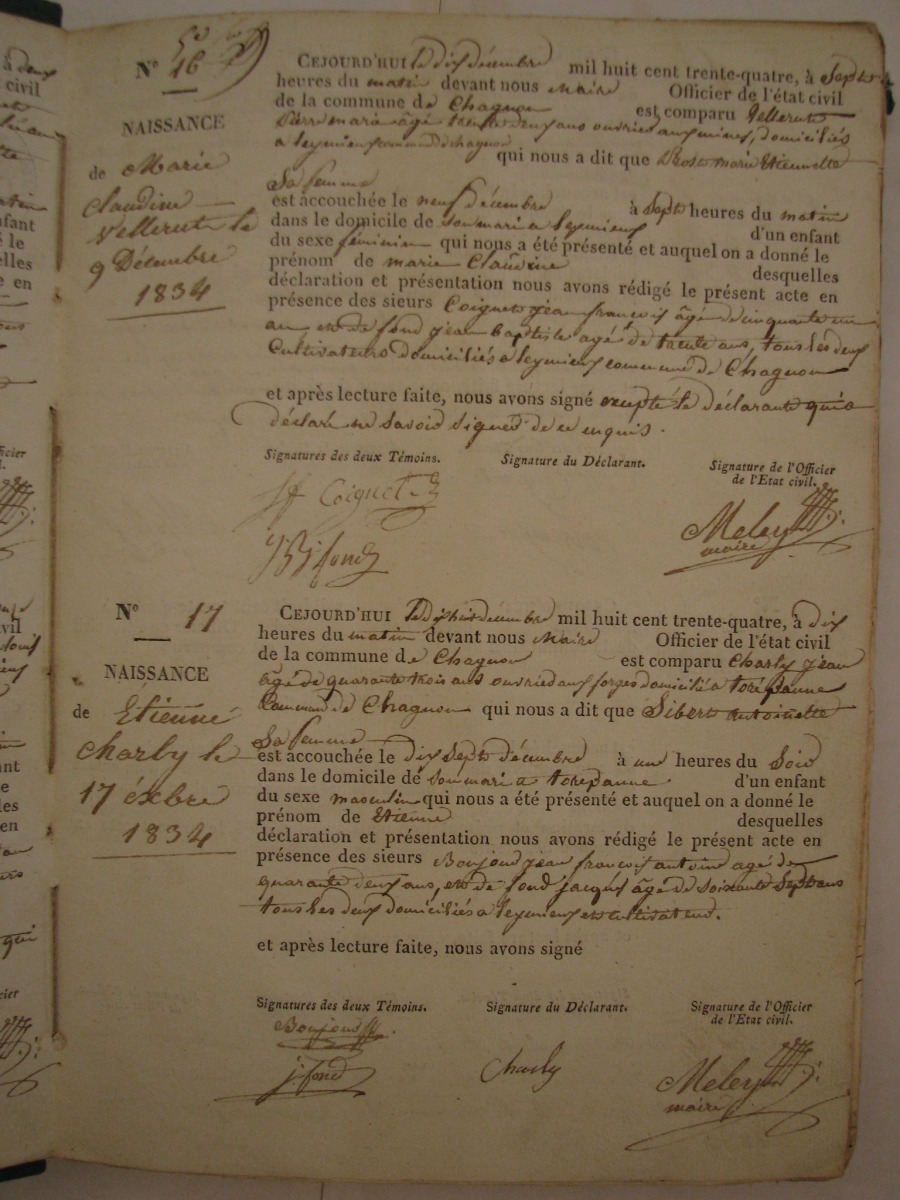 N° 16
NAISSANCE
de Marie
Claudine
Vellerut le
9 Décembre
1834
CEJOURD'HUI le dix décembre mil huit cent trente-quatre, à Sept
heures du matin devant nous Maire Officier de l'état civil
de la commune de Chagnon est comparu Vellerut
Pierre marie âgé trente deux ans ouvrier aux mines, domiciliés
a Leymieux commune de chagnon qui nous a dit que Rose marie Etiennette
Sa femme
est accouchée le neuf décembre à Sept heures du matin
dans le domicile de son mari a Leymieux d'un enfant
du sexe féminin qui nous a été présenté et auquel on a donné le
prénom de marie Claudine desquelles
déclaration et présentation nous avons rédigé le présent acte en
présence des sieurs Coignet jean françois âgé de cinquante un
an et de fond jean baptiste agé de trente ans, tous les deux
Cultivateurs domiciliés a Leymieux commune de Chagnon
et après lecture faite, nous avons signé excepté le déclarant qui a
déclaré ne savoir signer de ce enquis.
Signatures des deux Témoins. Signature du Déclarant. Signature de l'Officier
de l'Etat civil.
Coignet
fond
Meley
maire
N° 17
NAISSANCE
de Etienné
Charly le
17 éxbre
1834
CEJOURD'HUI le dix huit décembre mil huit cent trente-quatre, à dix
heures du matin devant nous Maire Officier de l'état civil
de la commune de Chagnon est comparu Charly jean
âgé de quarante trois ans ouvrier aux forges domicilié a torépanne
Commune de Chagnon qui nous a dit que Sibert antoinette
Sa femme
est accouchée le dix Sept décembre à un heures du Soir
dans le domicile de son mari a torepanne d'un enfant
du sexe masculin qui nous a été présenté et auquel on a donné le
prénom de Etienne desquelles
déclaration et présentation nous avons rédigé le présent acte en
présence des sieurs Bonjour jean françois antoine age de
quarante deux ans, et de fond jacques âgé de soixante Sept ans
tous les deux domiciliés a Leymieux et cultivateur.
et après lecture faite, nous avons signé
Signatures des deux Témoins. Signature du Déclarant. Signature de l'Officier
de l'Etat civil.
Bonjour
j. fond
Charly
Meley
maire